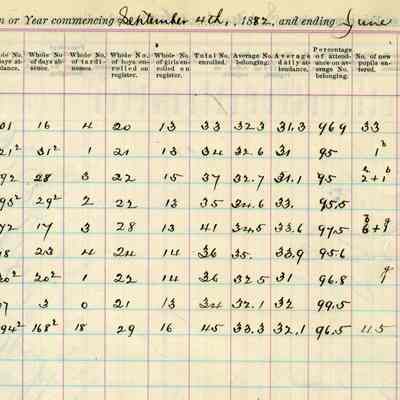 n or Year commencing September 4th, 1882, and ending June
Whole No. of days at- endance. Whole No. of days ab- sence. Whole No. of tardi- nesses. Whole No. of boys en- rolled on register. Whole No. of girls en- rolled on register. Total No. enrolled. Average No. belonging. Average daily at- tendance. Percentage of attend- ance on av- erage No. belonging. No. of new pupils en- tered.
01 16 4 20 13 33 32.3 31.3 96.9 33
21² 31² 1 21 13 34 32.6 31 95 1 b
92 28 3 22 15 37 32.7 31.1 95 2 + 1 b
95² 29² 2 22 13 35 34.6 33. 95.5
72 17 3 28 13 41 34.5 33.6 97.5 6 + 1
8 23 4 24 14 36 35. 33.9 95.6
20² 20² 1 22 14 36 32.5 31 96.8 1
7 3 0 21 13 34 32.1 32 99.5
94² 168² 18 29 16 45 33.3 32.1 96.5 11.5